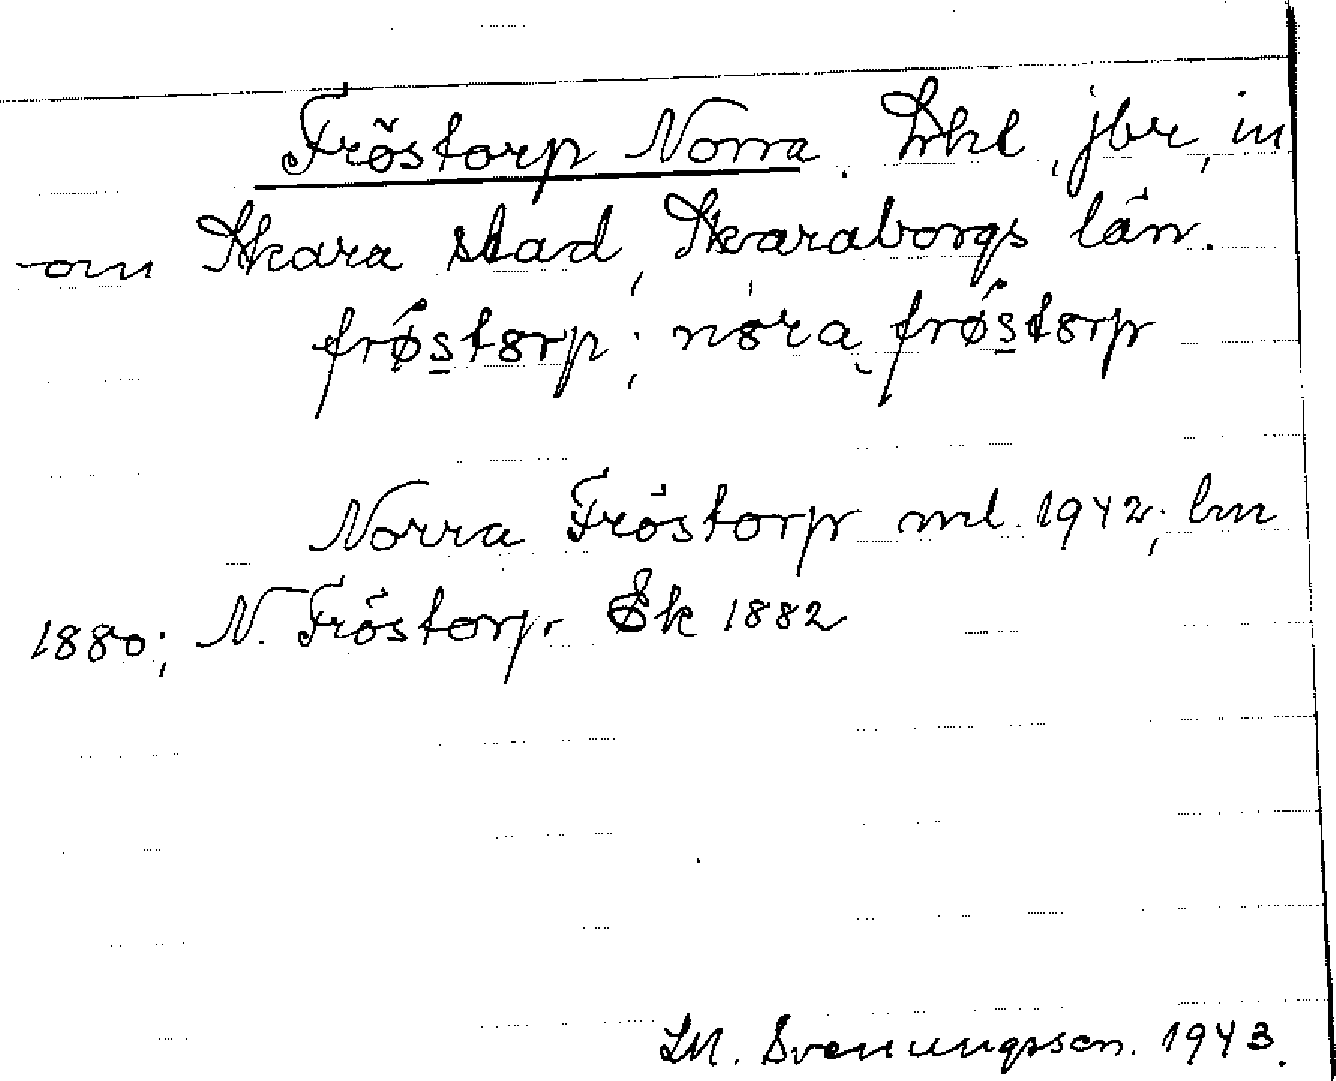 Fröstorp Norra. hhl, jbr, in
om Skara stad, Skaraborgs län.
frøstorp; nora frøstorp
Norra Fröstorp ml 1942; lm
1880; N. Fröstorp Ek 1882
LM. Svenungsson. 1943.